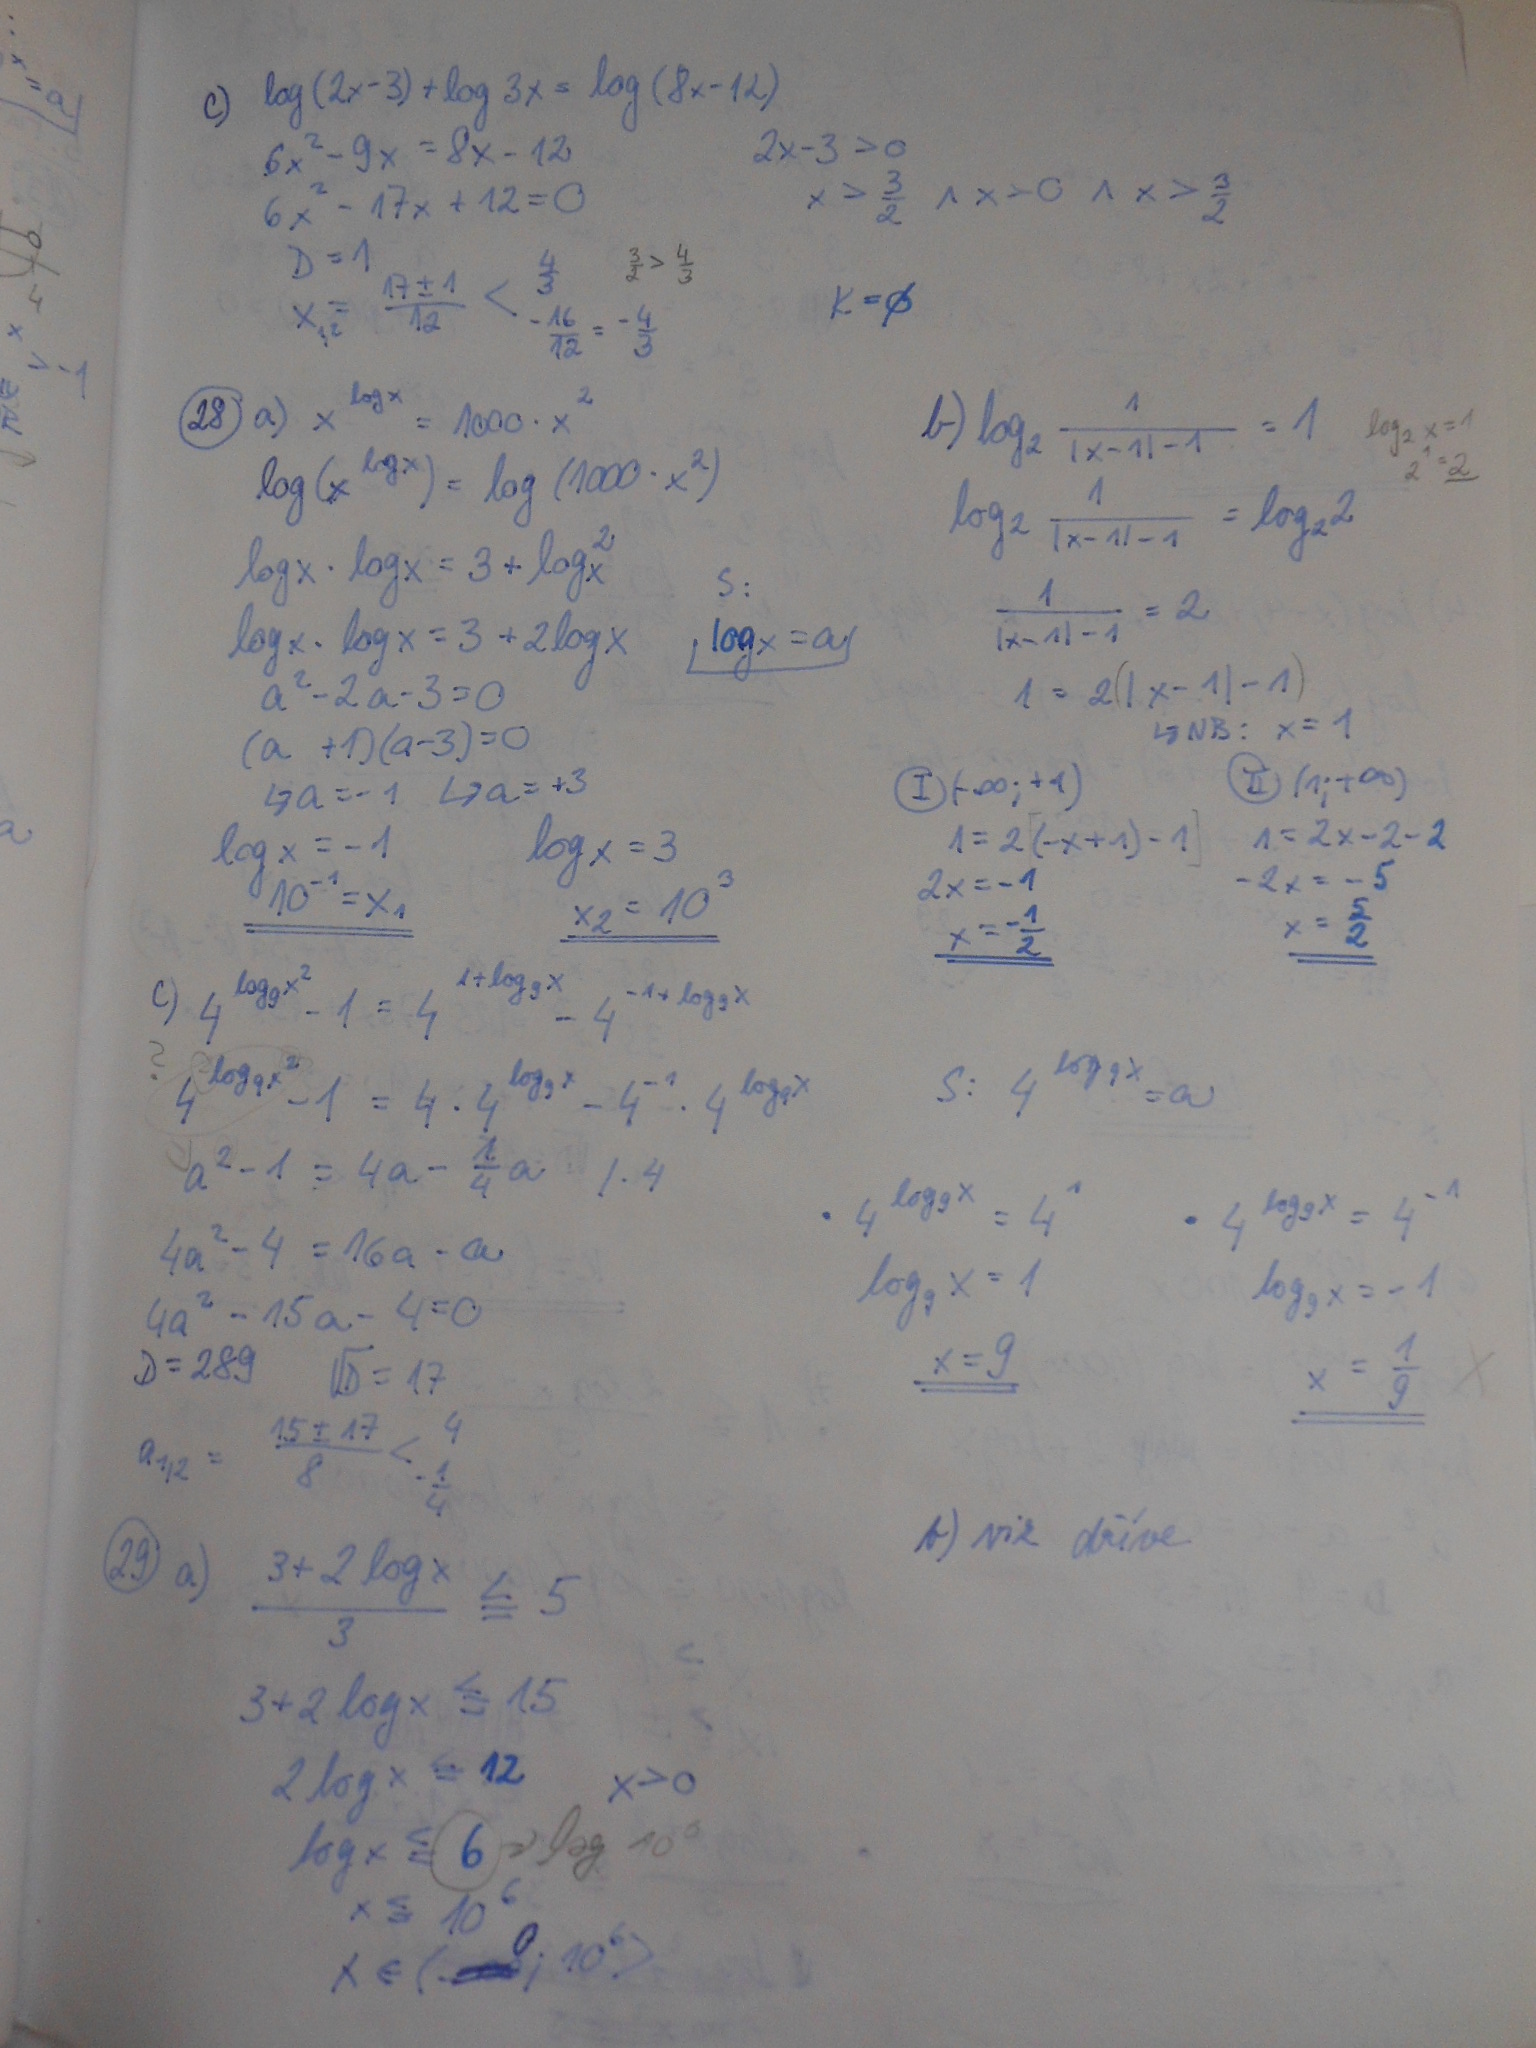 c) log(2x-3)+log 3x = log(8x-12)
6x² - 9x = 8x - 12
2x-3 > 0
6x² - 17x + 12 = 0
x > 3/2 ∧ x > 0 ∧ x > 3/2
D = 1
x₁,₂ = (17±1)/12 < 4/3
3/2 > 4/3
-16/12 = -4/3
K = ∅
28 a) x^(log x) = 1000 · x²
log(x^(log x)) = log(1000 · x²)
log x · log x = 3 + log x²
log x · log x = 3 + 2 log x
S:
log x = a
a² - 2a - 3 = 0
(a +1)(a-3) = 0
↳ a = -1 ↳ a = +3
log x = -1 log x = 3
10⁻¹ = x₁ x₂ = 10³
b) log₂ 1/(|x-1|-1) = 1
log₂ x = 1
2¹ = 2
log₂ 1/(|x-1|-1) = log₂ 2
1/(|x-1|-1) = 2
1 = 2(|x-1|-1)
↳ NB: x = 1
I (-∞; +1) II (1; +∞)
1 = 2[(-x+1)-1] 1 = 2x-2-2
2x = -1 -2x = -5
x = -1/2 x = 5/2
c) 4^(log₉x²) - 1 = 4^(1+log₉x) - 4^(-1+log₉x)
? 4^(log₉x²) - 1 = 4 · 4^(log₉x) - 4⁻¹ · 4^(log₉x)
S: 4^(log₉x) = a
a² - 1 = 4a - 1/4 a / · 4
4a² - 4 = 16a - a
4a² - 15a - 4 = 0
D = 289 √D = 17
a₁,₂ = (15±17)/8 < 4
-1/4
• 4^(log₉x) = 4¹ • 4^(log₉x) = 4⁻¹
log₉ x = 1 log₉ x = -1
x = 9 x = 1/9
29 a) (3+2 log x)/3 ≦ 5
b) viz dříve
3+2 log x ≦ 15
2 log x ≦ 12 x > 0
log x ≦ 6 → log 10⁶
x ≦ 10⁶
x ∈ (0; 10⁶⟩